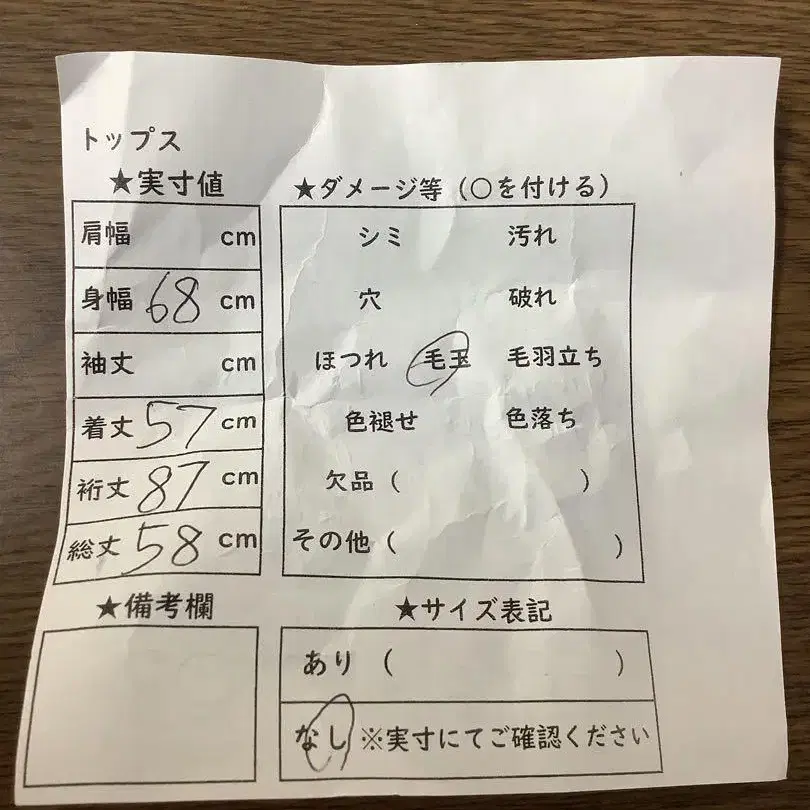 トップス
★実寸値
肩幅 cm
身幅 68 cm
袖丈 cm
着丈 57 cm
裄丈 87 cm
総丈 58 cm
★ダメージ等(○を付ける)
シミ 汚れ
穴 破れ
ほつれ 毛玉 毛羽立ち
色褪せ 色落ち
欠品( )
その他( )
★備考欄
★サイズ表記
あり( )
なし ※実寸にてご確認ください